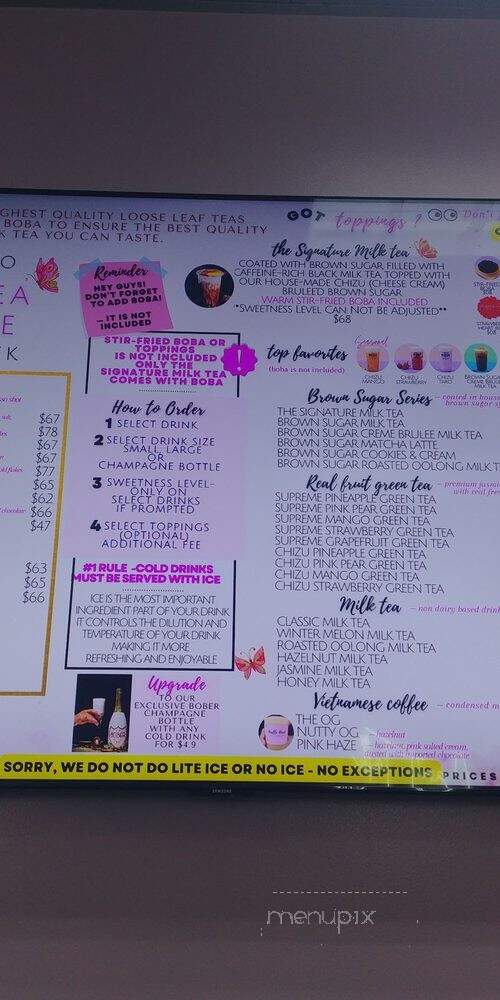 GHEST QUALITY LOOSE LEAF TEAS
BOBA TO ENSURE THE BEST QUALITY
K TEA YOU CAN TASTE.
O
EA
E
K
$67
$78
$67
$67
$77
$65
$62
chocolate $66
$47
$63
$65
$66
Reminder
HEY GUYS!
DON'T FORGET
TO ADD BOBA!
- IT IS NOT
INCLUDED
STIR-FRIED BOBA OR
TOPPINGS
IS NOT INCLUDED
ONLY THE
SIGNATURE MILK TEA
COMES WITH BOBA
How to Order
1 SELECT DRINK
2 SELECT DRINK SIZE
SMALL, LARGE
OR
CHAMPAGNE BOTTLE
3 SWEETNESS LEVEL-
ONLY ON
SELECT DRINKS
IF PROMPTED
4 SELECT TOPPINGS
(OPTIONAL)
ADDITIONAL FEE
#1 RULE -COLD DRINKS
MUST BE SERVED WITH ICE
ICE IS THE MOST IMPORTANT
INGREDIENT PART OF YOUR DRINK
IT CONTROLS THE DILUTION AND
TEMPERATURE OF YOUR DRINK
MAKING IT MORE
REFRESHING AND ENJOYABLE
Upgrade
TO OUR
EXCLUSIVE BOBER
CHAMPAGNE
BOTTLE
WITH ANY
COLD DRINK
FOR $4.9
GOT toppings? Don't
the Signature Milk tea
COATED WITH BROWN SUGAR FILLED WITH
CAFFEINE-RICH BLACK MILK TEA TOPPED WITH
OUR HOUSE-MADE CHIZU (CHEESE CREAM)
BRULEED BROWN SUGAR
WARM STIR-FRIED BOBA INCLUDED
*SWEETNESS LEVEL CAN NOT BE ADJUSTED**
$6.8
top favorites
(boba is not included)
Seasonal
CHIZU
MANGO
CHIZU
STRAWBERRY
CHIZU
TARO
BROWN SUGAR
CREME BRULEE
MILK TEA
Brown Sugar Series - coated in house
brown sugar
THE SIGNATURE MILK TEA
BROWN SUGAR MILK TEA
BROWN SUGAR CREME BRULEE MILK TEA
BROWN SUGAR MATCHA LATTE
BROWN SUGAR COOKIES & CREAM
BROWN SUGAR ROASTED OOLONG MILK T
Real fruit green tea - premium jasmi
with real fre
SUPREME PINEAPPLE GREEN TEA
SUPREME PINK PEAR GREEN TEA
SUPREME MANGO GREEN TEA
SUPREME STRAWBERRY GREEN TEA
SUPREME GRAPEFRUIT GREEN TEA
CHIZU PINEAPPLE GREEN TEA
CHIZU PINK PEAR GREEN TEA
CHIZU MANGO GREEN TEA
CHIZU STRAWBERRY GREEN TEA
Milk tea - non dairy based drin
CLASSIC MILK TEA
WINTER MELON MILK TEA
ROASTED OOLONG MILK TEA
HAZELNUT MILK TEA
JASMINE MILK TEA
HONEY MILK TEA
Vietnamese coffee - condensed m
THE OG
NUTTY OG - hazelnut
PINK HAZE - hazelnut, pink salted cream,
dusted with imported chocolate
SORRY, WE DO NOT DO LITE ICE OR NO ICE - NO EXCEPTIONS PRICES
SAMSUNG
menupix